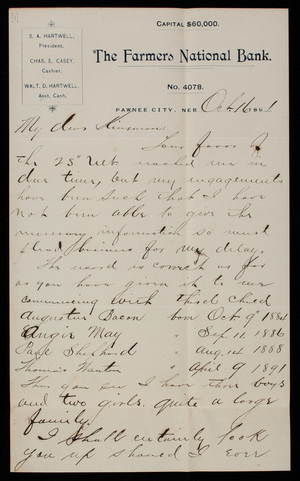 CAPITAL $60,000.
S. A. HARTWELL,
President.
CHAS. E. CASEY,
Cashier.
WALT. D. HARTWELL,
Asst. Cash.
The Farmers National Bank.
No. 4078.
PAWNEE CITY, NEB. Oct 16 1891
My dear Kinsman
Your favor of
the 25" reached me in
due time, but my engagements
have been such that I have
not been able to give the
necessary information so must
plead business for my delay.
The record is correct as far
as you have given it to me
commencing with third child
Augustus Bacon born Oct 9" 1884
Angie May " Sep 11, 1886
Park Shephard " Aug, 14 1888
Thomas " April 9 1891
Thus you see I have three boys
and two girls, quite a large
family.
I shall certainly look
you up should I ever